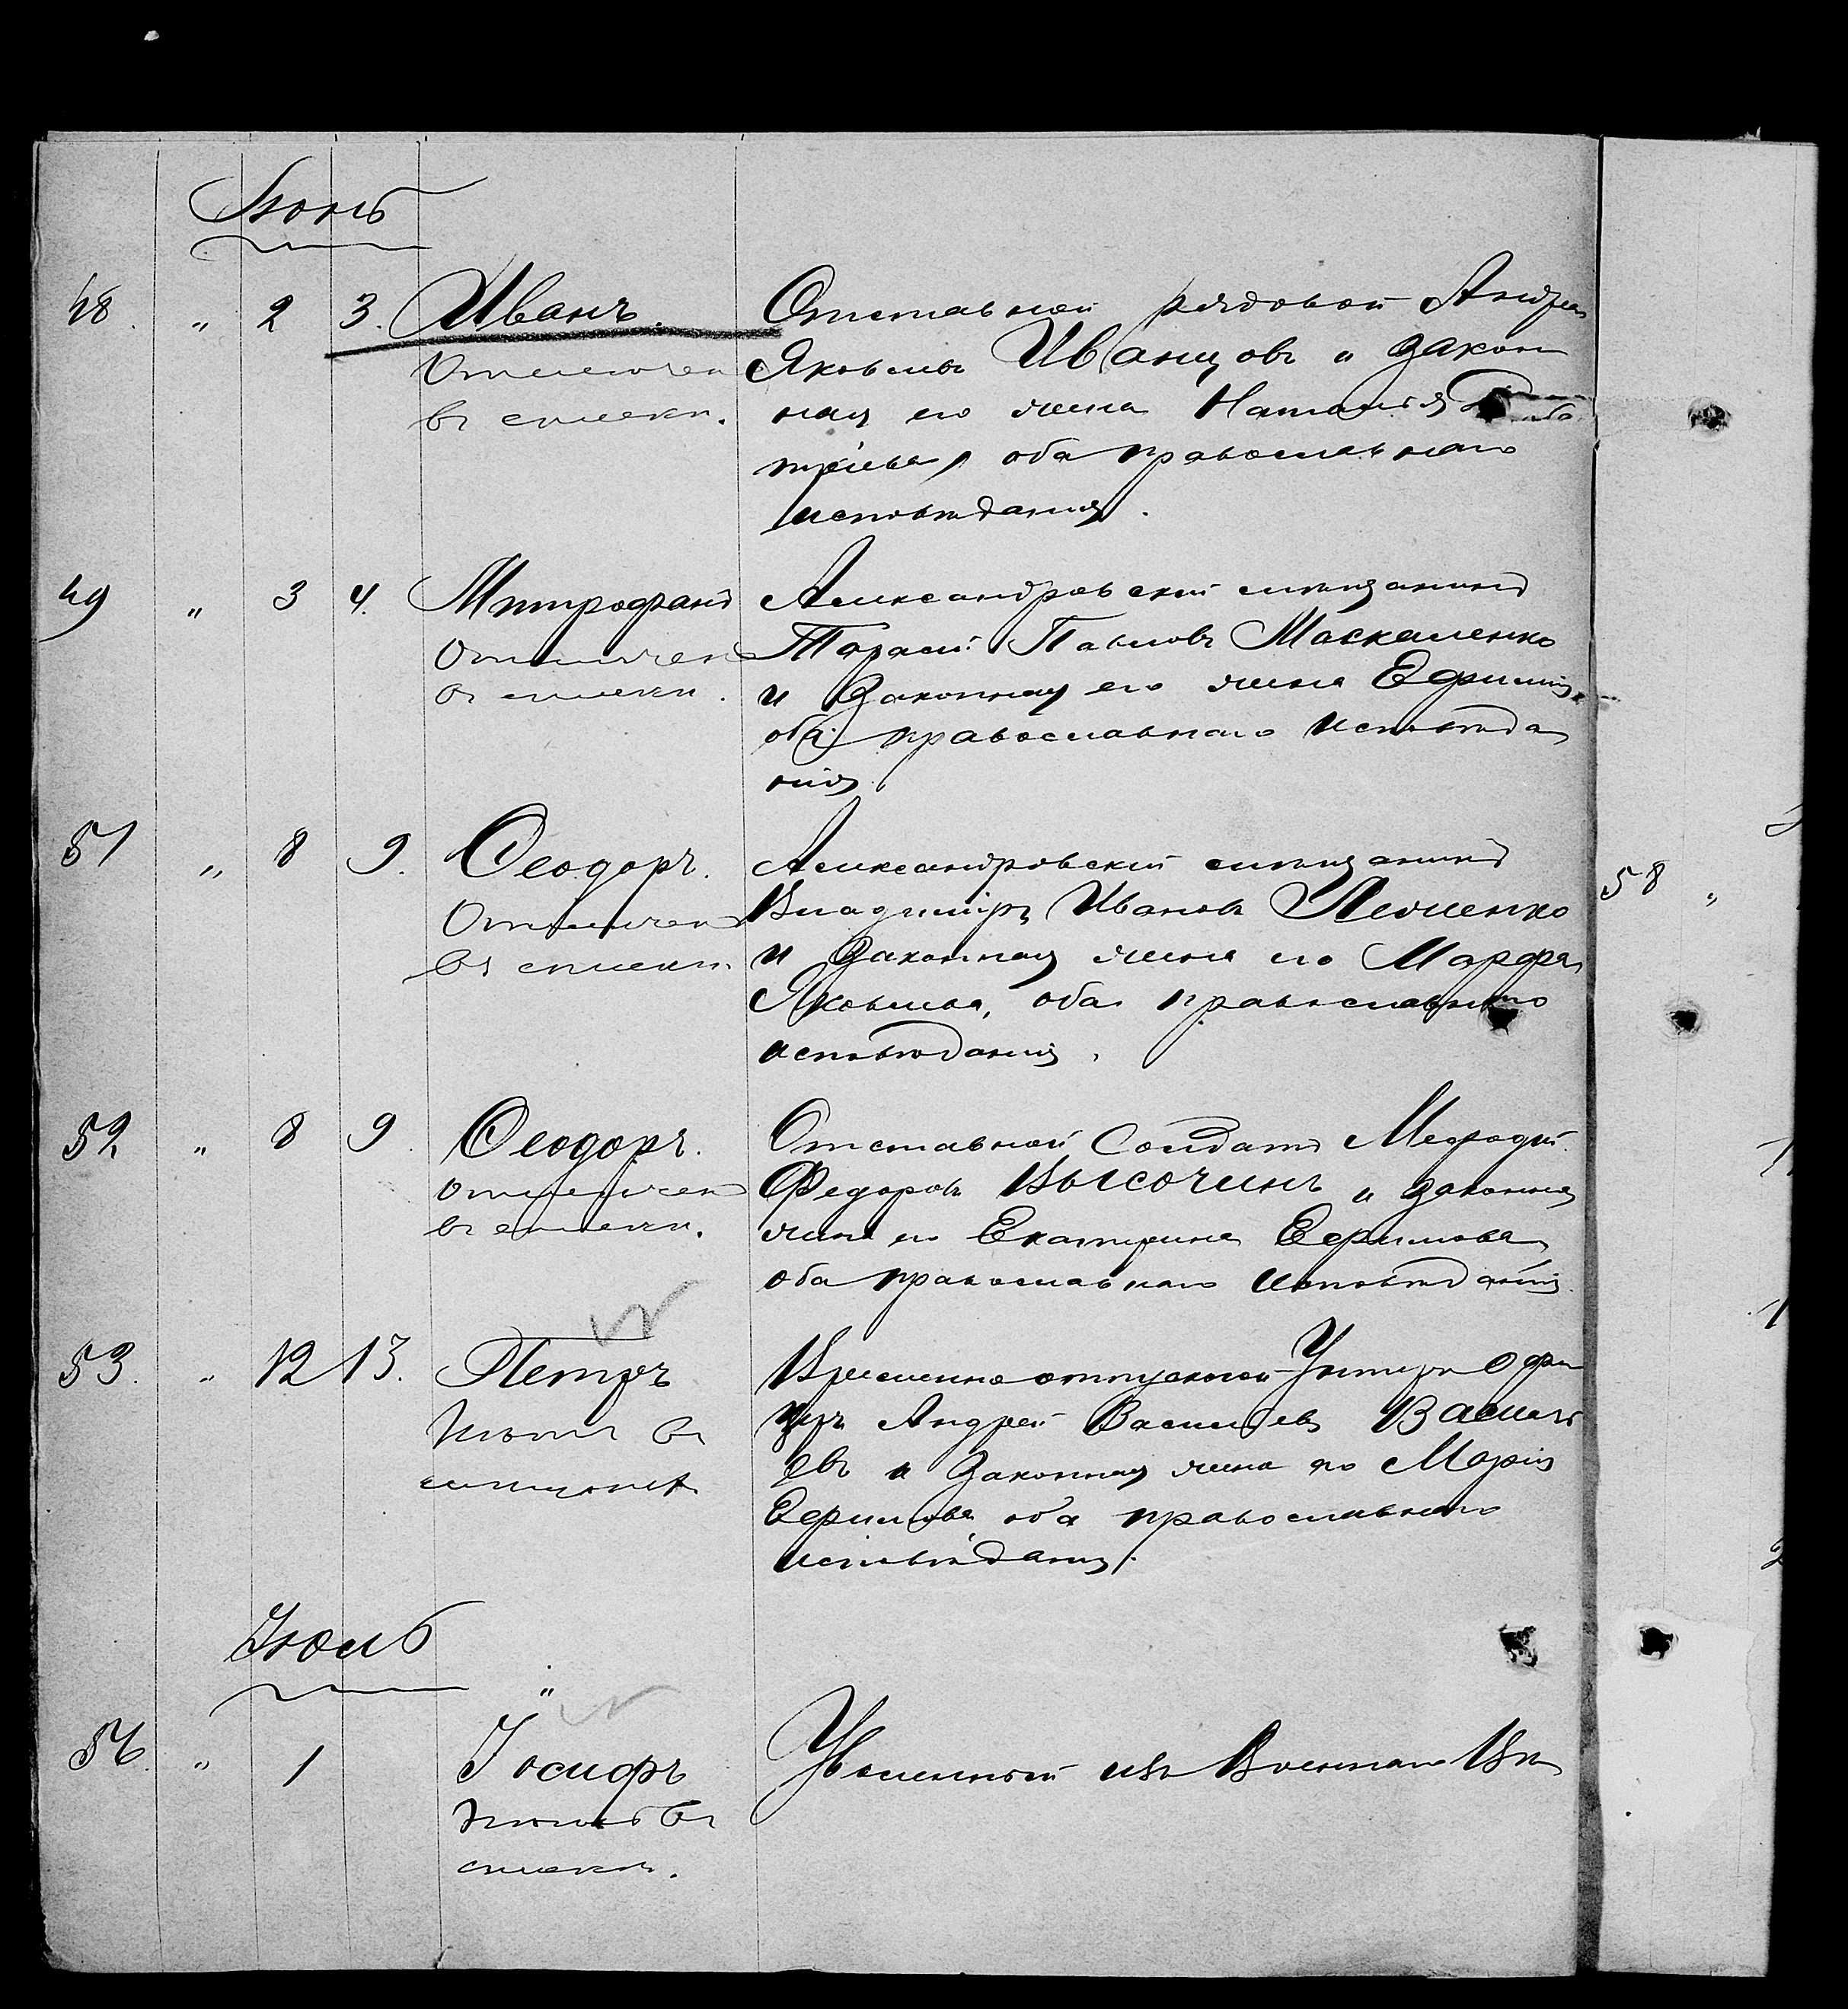 Іюнь
48. " 2 3. Иванъ.
Отмеченъ
въ списки.
Отставной рядовой Андрей
Яковлевъ Иванцовъ и закон
ная его жена Наталія
тріева, оба православнаго
исповѣданія.
49 " 3 4. Митрофанъ
Отмеченъ
въ списки.
Александровскій мѣщанинъ
Тарасій Павловъ Маскаленко
и Законная его жена Ефимія,
оба православнаго исповѣда
нія.
51 " 8 9. Ѳеодоръ.
Отмеченъ
въ списки.
Александровскій мѣщанинъ
Владиміръ Ивановъ
и Законная жена его Марфа
Яковлева, оба православнаго
исповѣданія.
52 " 8 9. Ѳеодоръ.
Отмеченъ
въ списки.
Отставной Солдатъ Мефодій
Федоровъ Высочинъ и законная
жена его Екатерина Ефимова
оба православнаго исповѣданія.
53. " 12 13. Петръ
въ
Временно отпускной Унтеръ Офи
церъ Андрей Васильевъ Василь
евъ и Законная жена его Марія
Ефимова, оба православнаго
исповѣданія.
Іюль
56. " 1 Іосифъ
въ
списки.
Уволенный изъ Военнаго Вѣ
58 "